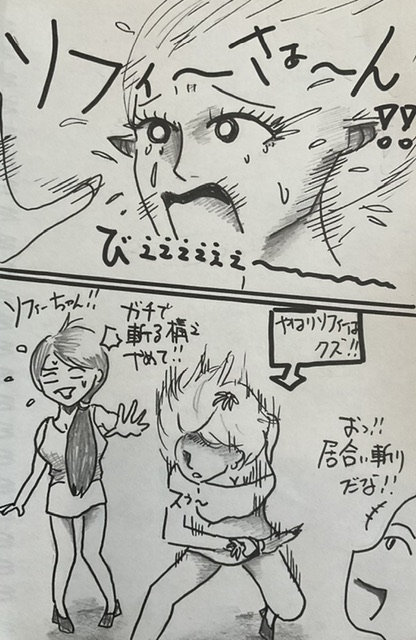 ソフィ〜さぁ〜ん!!
びぇぇぇぇぇぇ〜
ソフィーちゃん!!
ガチで
斬る構え
やめて!!
やはりソフィーは
クズ!!
おっ!!
居合い斬り
だな!!
スゥ〜